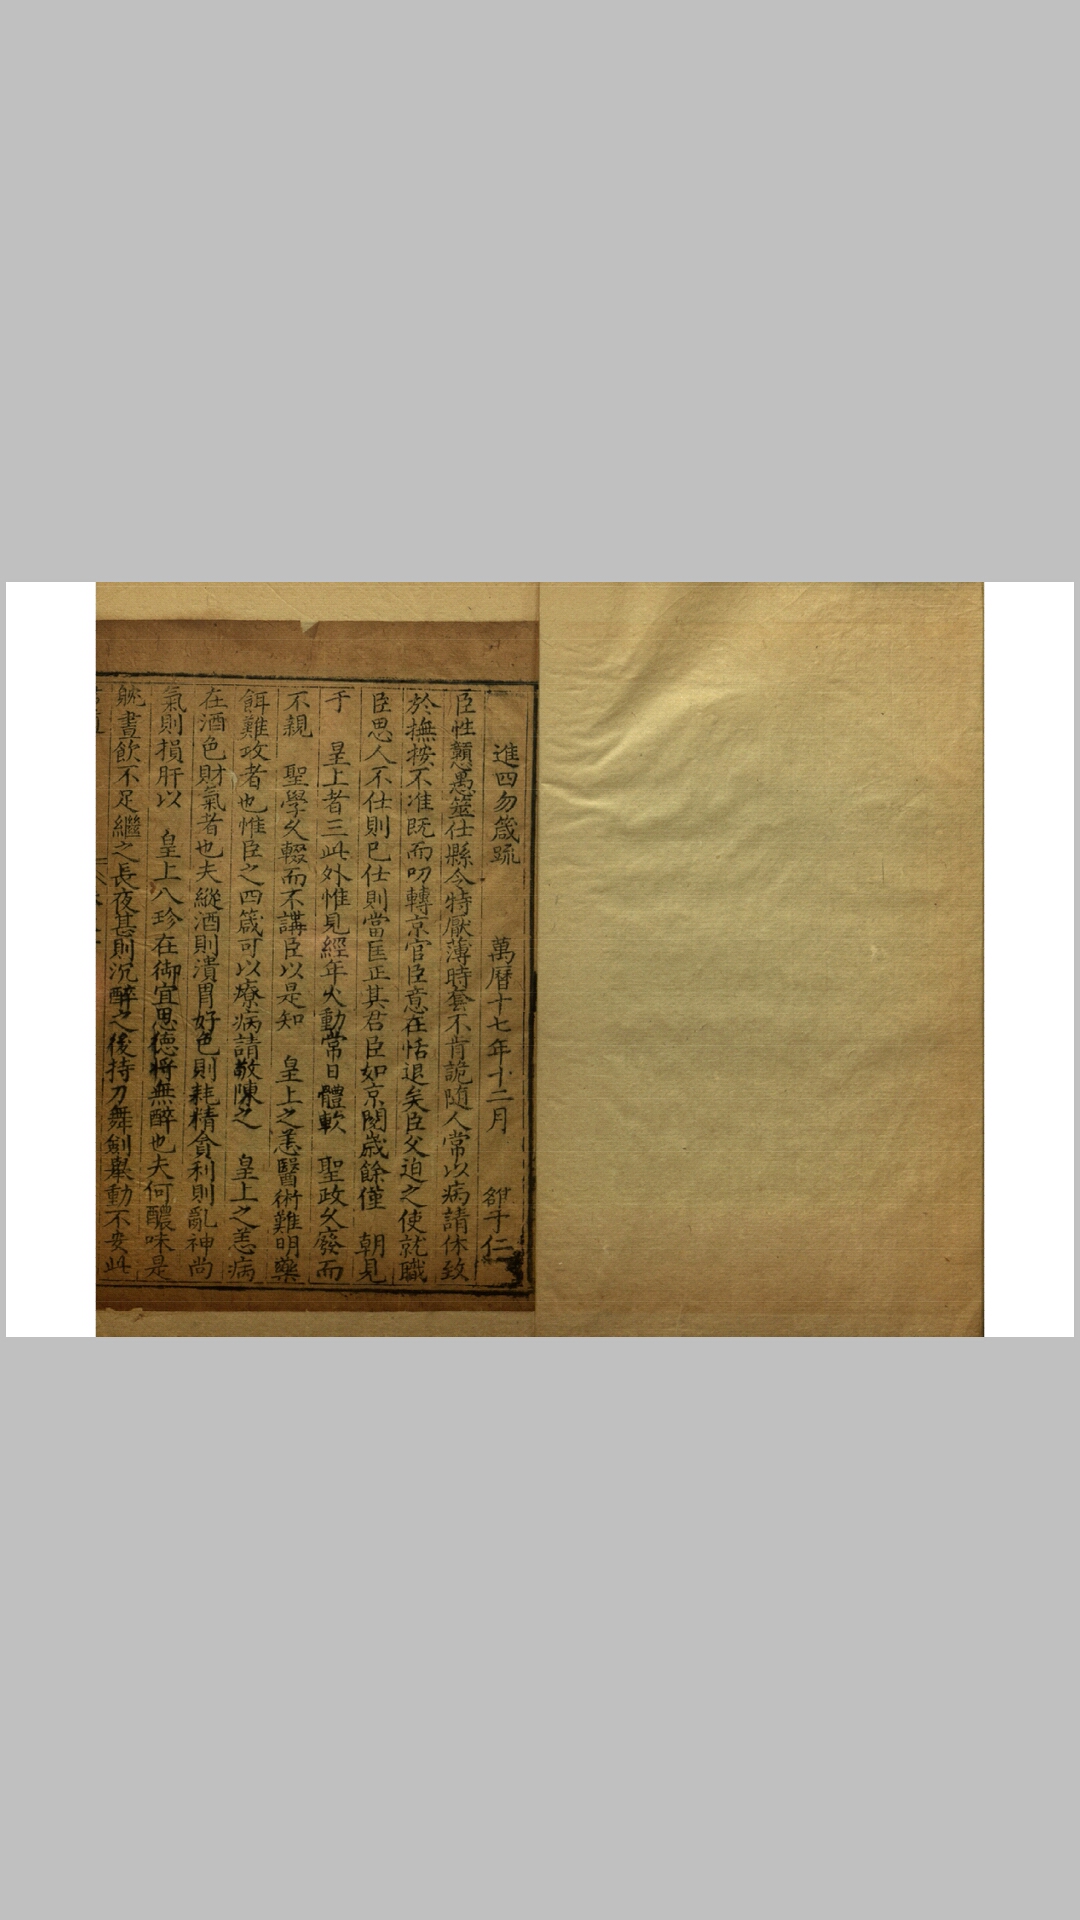 進四勿箴疏 萬曆十七年十二月 雒于仁
臣性戇愚筮仕縣令特厭薄時套不肯詭隨人常以病請休致
於撫按不准既而叨轉京官臣意在恬退矣臣父迫之使就職
臣思人不仕則已仕則當匡正其君臣如京閱歲餘僅 朝見
于 皇上者三此外惟見經年火動常日體軟 聖政久廢而
不親 聖學久輟而不講臣以是知 皇上之恙醫術難明藥
餌難攻者也惟臣之四箴可以療病請敬陳之 皇上之恙病
在酒色財氣者也夫縱酒則潰胃好色則耗精貪利則亂神尚
氣則損肝以 皇上八珍在御宜思德將無醉也夫何醲味是
躭晝飲不足繼之長夜甚則沉醉之後持刀舞劍舉動不安此